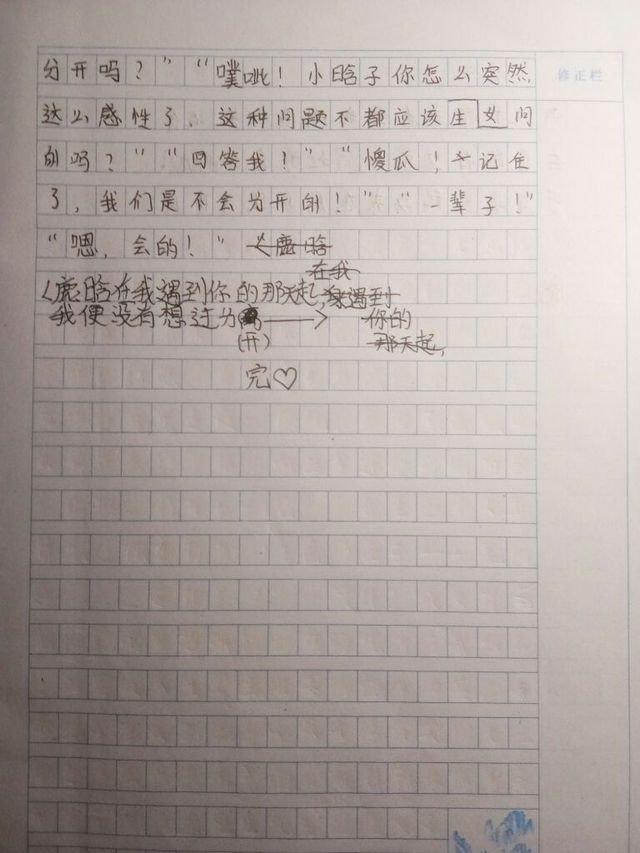 分开吗？”“噗呲！小晗子你怎么突然
修正栏
这么感性了，这种问题不都应该生女问
的吗？”“回答我！”“傻瓜！女记住
了，我们是不会分开的！”“一辈子！”
“嗯，会的！”鹿晗
在我
鹿晗在我遇到你的那天起，遇到
我便没有想过分——> 你的
（开） 那天起，
完♡